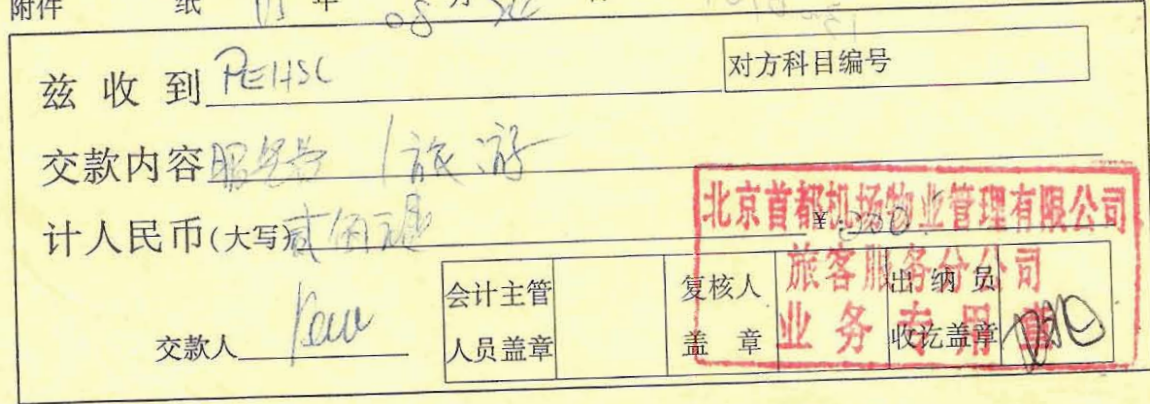 附件 纸 年 08 月
兹收到 PEHSC 对方科目编号
交款内容 服务费 / 旅游
计人民币(大写) 贰佰元整 ¥ 200.
北京首都机场物业管理有限公司
旅客服务分公司
业务专用章
交款人 会计主管人员盖章 复核人盖章 出纳员收讫盖章